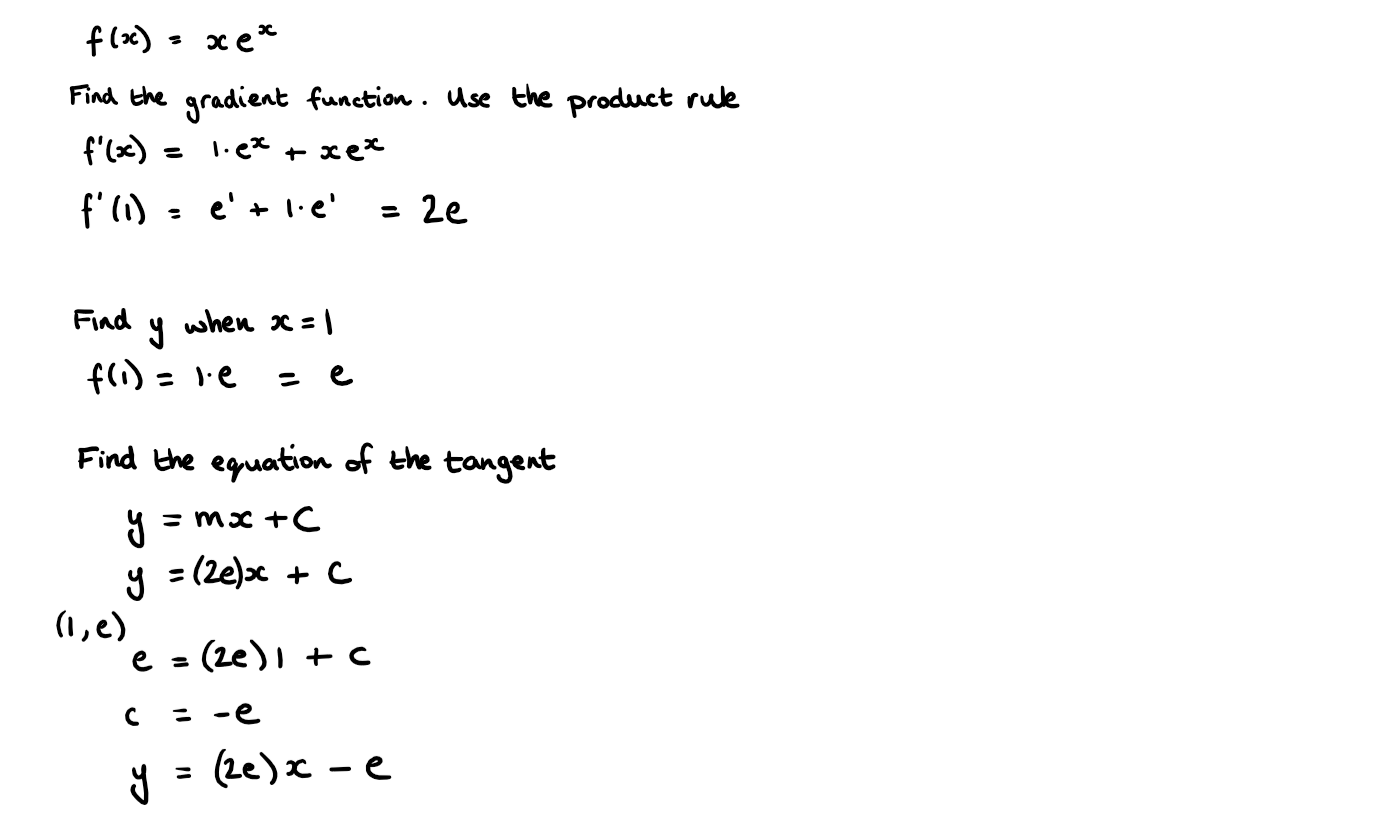 f(x) = xeˣ
Find the gradient function. Use the product rule
f'(x) = 1·eˣ + xeˣ
f'(1) = e¹ + 1·e¹ = 2e
Find y when x=1
f(1) = 1·e = e
Find the equation of the tangent
y = mx + C
y = (2e)x + C
(1, e)
e = (2e)1 + c
c = -e
y = (2e)x - e